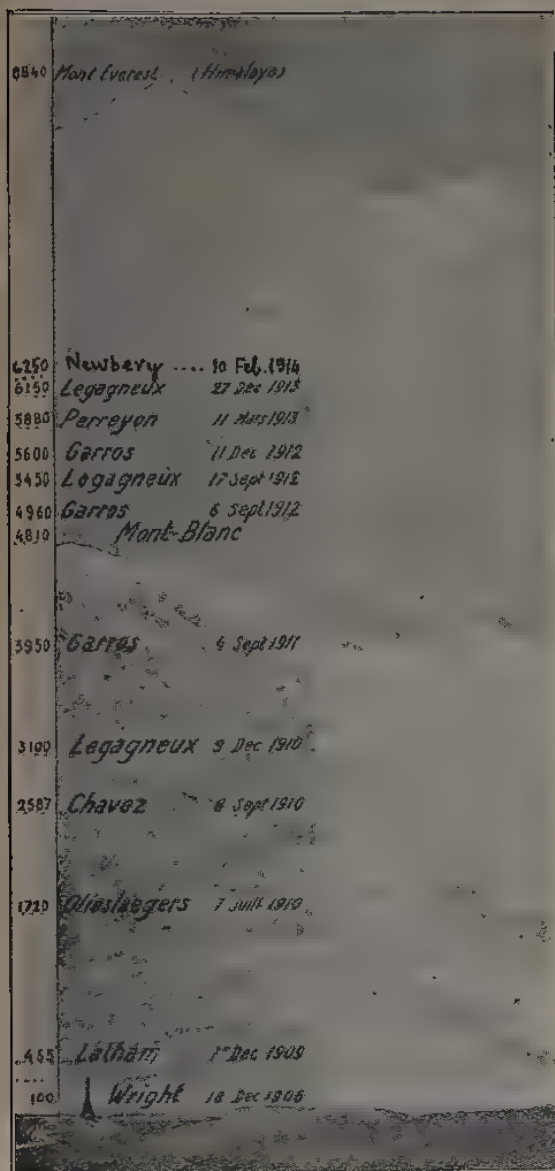 8840 Mont Everest. (Himalaya)
6250 Newbery .... 10 Feb. 1914
6150 Legagneux 27 Dec 1913
5880 Perreyon 11 Mars 1913
5600 Garros 11 Dec 1912
5450 Legagneux 17 Sept 1912
4960 Garros 6 Sept 1912
4810 Mont-Blanc
3950 Garros 4 Sept 1911
3100 Legagneux 9 Dec 1910
2587 Chavez 8 Sept 1910
1720 Olieslaegers 7 Juill 1910
453 Latham 1er Dec 1909
100 Wright 18 Dec 1908